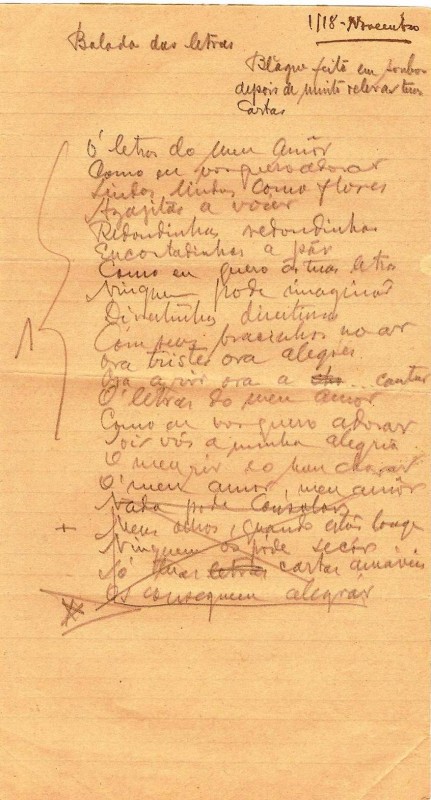 1/18-Novembro
Balada das letras
Blague feita em
depois de muito reler as tuas
Cartas
Ó letras do meu Amôr
Como eu vos quero adorar
Lindas lindas como flores
a voar
Redondinhas redondinhas
Encostadinhas a pár
Como eu quero ás tuas letras
Ninguem pode imaginar
Direitinhas direitinhas
Com seus bracinhos no ar
Ora tristes ora alegres
Ora a rir ora a ... cantar
Ó letras do meu amor
Como eu vos quero adorar
Sois vós a minha alegria
O meu rir e o meu chorar
Ó meu amor, meu amôr
Nada pode Consolar
+ Meus olhos, quando estás longe
Ninguem os póde secár
Só tuas letras cartas amáveis
Os conseguem alegrár